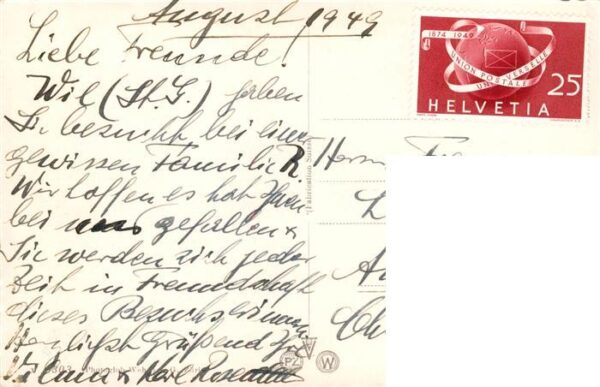 August 1949
Liebe Freunde!
Wil (St. G.) haben
Sie besucht bei einer
gewissen Familie R.
Wir hoffen es hat Ihnen
bei uns gefallen &
Sie werden sich jeder
Zeit in Freundschaft
dieses Besuches
Herzlichst Grüssend Ihre
& Karl
Herrn
1874 1949
UNION POSTALE UNIVERSELLE
25
HELVETIA
PZ
W